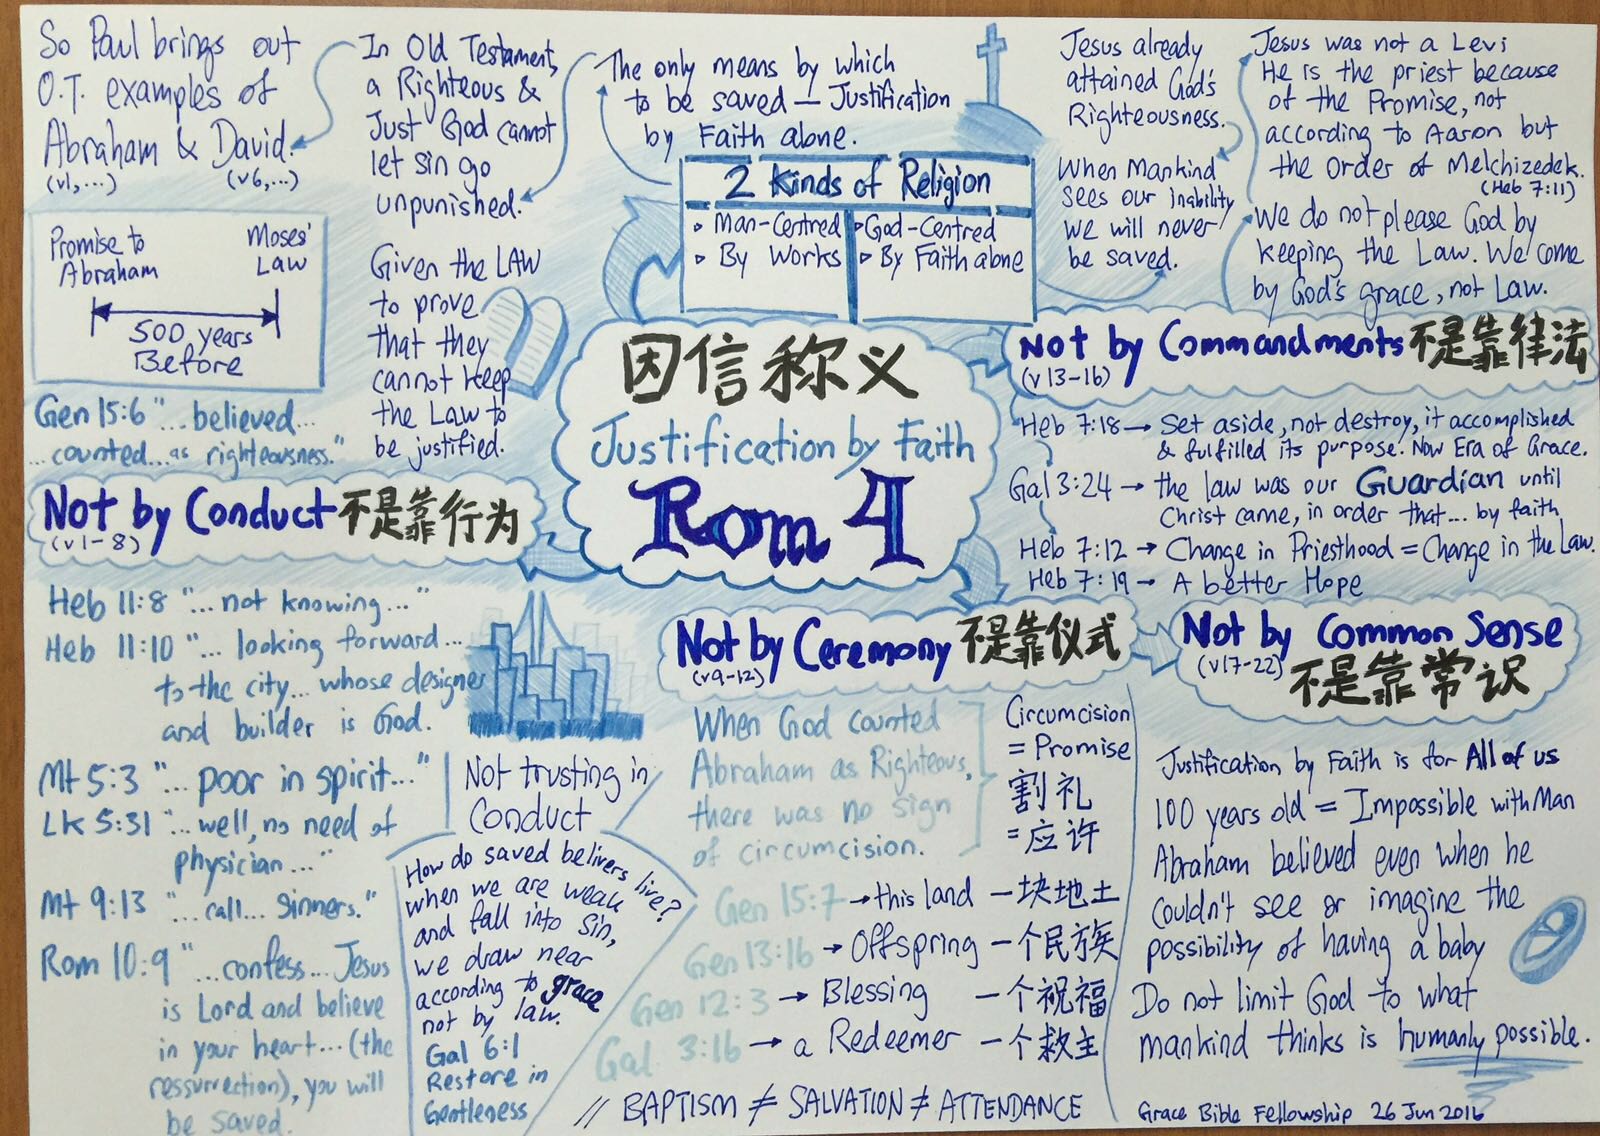 So Paul brings out
O.T. examples of
Abraham & David.
(v1,...) (v6,...)
In Old Testament,
a Righteous &
Just God cannot
let sin go
unpunished.
The only means by which
to be saved — Justification
by Faith alone.
2 Kinds of Religion
▹ Man-Centred
▹ By Works
▹ God-Centred
▹ By Faith alone
Jesus already
attained God's
Righteousness.
When Mankind
sees our inability
we will never
be saved.
Jesus was not a Levi
He is the priest because
of the Promise, not
according to Aaron but
the Order of Melchizedek.
(Heb 7:11)
We do not please God by
keeping the Law. We come
by God's grace, not Law.
Promise to
Abraham
Moses'
Law
500 years
Before
Given the LAW
to prove
that they
cannot keep
the Law to
be justified.
Gen 15:6 "...believed...
...counted...as righteousness."
因信称义
Justification by Faith
Rom 4
Not by Commandments 不是靠律法
(v13-16)
Heb 7:18 → Set aside, not destroy, it accomplished
& fulfilled its purpose. Now Era of Grace.
Gal 3:24 → the law was our Guardian until
Christ came, in order that... by faith
Heb 7:12 → Change in Priesthood = Change in the Law.
Heb 7:19 → A better Hope
Not by Conduct 不是靠行为
(v1-8)
Heb 11:8 "...not knowing..."
Heb 11:10 "... looking forward...
to the city... whose designer
and builder is God.
Mt 5:3 "...poor in spirit..."
Lk 5:31 "...well, no need of
physician..."
Mt 9:13 "...call... sinners."
Rom 10:9 "...confess... Jesus
is Lord and believe
in your heart... (the
ressurrection), you will
be saved.
Not trusting in
Conduct
How do saved belivers live?
when we are weak
and fall into sin,
we draw near
according to grace
not by law.
Gal 6:1
Restore in
Gentleness
Not by Ceremony 不是靠仪式
(v9-12)
When God counted
Abraham as Righteous,
there was no sign
of circumcision.
Circumcision
= Promise
割礼
= 应许
Gen 15:7 → this land 一块地土
Gen 13:16 → Offspring 一个民族
Gen 12:3 → Blessing 一个祝福
Gal 3:16 → a Redeemer 一个救主
// BAPTISM ≠ SALVATION ≠ ATTENDANCE
Not by Common Sense
(v17-22) 不是靠常识
Justification by Faith is for All of us
100 years old = Impossible with Man
Abraham believed even when he
couldn't see or imagine the
possibility of having a baby
Do not limit God to what
mankind thinks is humanly possible.
Grace Bible Fellowship 26 Jun 2016